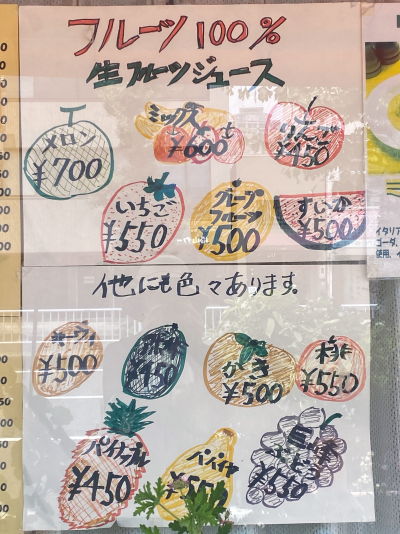 フルーツ100%
生フルーツジュース
メロン
¥700
ミックス
¥600
りんご
¥450
いちご
¥550
グレープ
フルーツ
¥500
すいか
¥500
他にも色々あります。
キウイ
¥500
¥450
かき
¥500
桃
¥550
パイナップル
¥450
パパイヤ
¥550
巨峰
ぶどう
¥550
イタリア
ゴーダ、
使用、イ